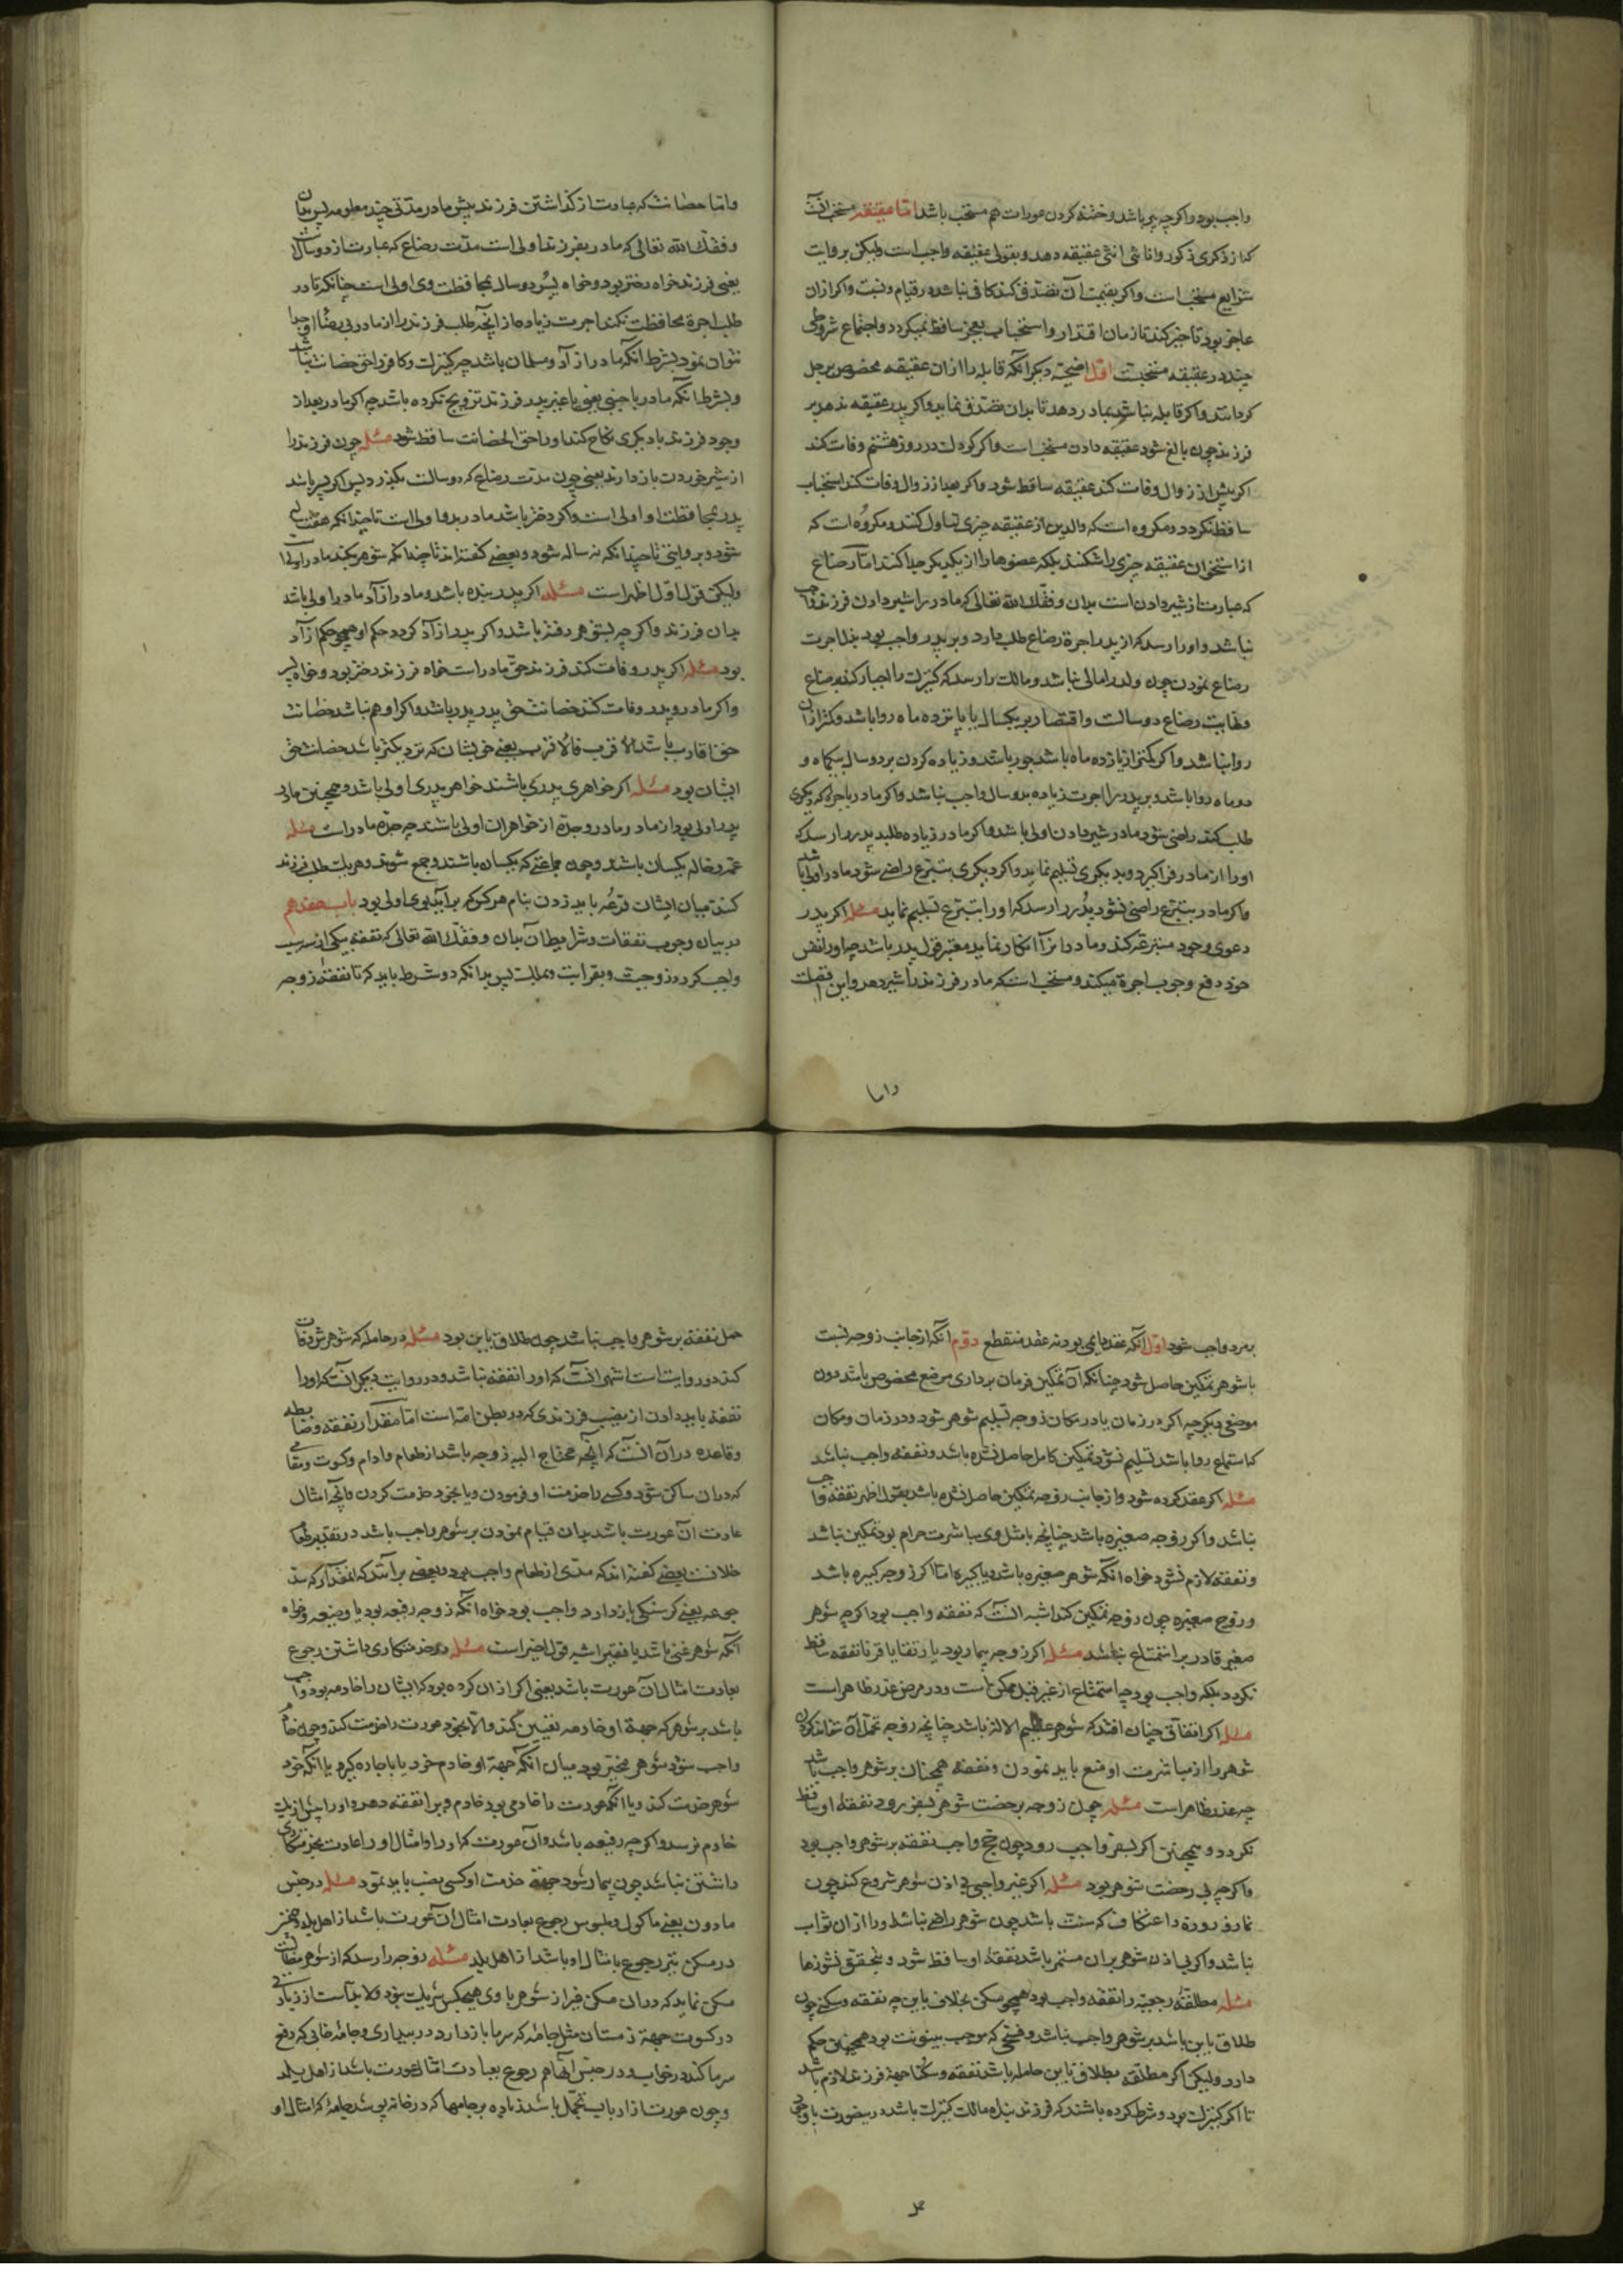 واجب بود واکر چه پیر باشد وختنه کردن عورات هم مستحب باشد اما عقیقه مستحب آنست
که از ذکری ذکور واناثی انثی عقیقه دهد وبقولی عقیقه واجب است ولیکن بروایت
شرایع مستحب است واکر بقیمت آن تصدق کند کافی نباشد در قیام وثبت واکر ازان
عاجز بود تاخیر کند تا زمان اقتدار واستحباب بعجز ساقط نمیکردد واجتماع شروطی
چند در عقیقه مستحبست اول اضحیه دیکر آنکه قابله را ازان عقیقه مخصوص برجل
کرداند واکر قابله نباشد بمادر دهد تا بدان تصدق نماید واکر پدر عقیقه ندهد بر
فرزند چون بالغ شود عقیقه دادن مستحب است واکر کودک در روز هشتم وفات کند
اکر پیش از زوال وفات کند عقیقه ساقط شود واکر بعد از زوال وفات کند استحباب
ساقط نکردد ومکروه است که والدین از عقیقه چیزی تناول کنند ومکروه است که
از استخوان عقیقه چیزی را شکنند بلکه عضوها را از یکدیکر جدا کنند اما رضاع
که عبارت از شیر دادن است بدان وفقک الله تعالی که مادر را شیر دادن فرزند واجب
نباشد واو را رسد که از پدر اجرة رضاع طلب دارد وبر پدر واجب بود بذل اجرت
رضاع نمودن چون ولد را مالی نباشد ومالک را رسد که کنیزک را اجبار کند برضاع
ونهایت رضاع دو سالست واقتصار بر یکسال یا پانزده ماه روا باشد وکمتر ازان
روا نباشد واکر کمتر از پانزده ماه باشد جور باشد وزیاده کردن بر دو سال بیکماه و
دو ماه روا باشد وبر پدر را اجرت زیاده بدو سال واجب نباشد واکر مادر باجرة که دیکری
طلب کند راضی شود مادر شیر دادن اولی باشد واکر مادر زیاده طلبد پدر را رسد که
او را از مادر فرا کیرد وبدیکری تسلیم نماید واکر دیکری بتبرع راضی شود مادر اولی باشد
واکر مادر بتبرع راضی نشود پدر را رسد که او را بتبرع تسلیم نماید مسئله اکر پدر
دعوی وجود متبرعه کند ومادر آنرا انکار نماید معتبر قول پدر باشد چه او از نفس
خود دفع وجوب اجرة میکند ومستحب است که مادر فرزند را شیر دهد واین افضلست
واما
واما حضانت که عبارت از کذاشتن فرزند پیش مادر مدتی چند معلومه پس بدان
وفقک الله تعالی که مادر بفرزند اولی است مدت رضاع که عبارت از دو سالست
یعنی فرزند خواه دختر بود وخواه پسر دو سال بمحافظت وی اولی است چنانکه تا در
طلب اجرة محافظت نکند اجرت زیاده از آنچه طلب فرزند را از مادر بی رضاء او جدا
نتوان نمود بشرط آنکه مادر ازآد ومسلمان باشد چه کنیزک وکافر را حق حضانت نباشد
وبشرط آنکه مادر با جنبی یعنی با غیر پدر فرزند تزویج نکرده باشد چه اکر مادر بعد از
وجود فرزند با دیکری نکاح کند او را حق الحضانت ساقط شود مسئله چون فرزند را
از شیر خوردن باز دارند یعنی چون مدت رضاع که دو سالست بکذرد پس اکر پسر باشد
پدر بمحافظت او اولی است واکر دختر باشد مادر بدو اولی است تا چندانکه هفت ساله
شود وبروایتی تا چندانکه نه ساله شود وبعضی کفته اند تا چندانکه شوهر بکند مادر اولی
ولیکن قول اول اظهر است مسئله اکر پدر بنده باشد ومادر ازآد مادر اولی باشد
بدان فرزند واکر چه بشوهر رفته باشد واکر پدر ازآد کردد حکم او همچو حکم ازآد
بود مسئله اکر پدر وفات کند فرزند حق مادر است خواه فرزند دختر بود وخواه پسر
واکر مادر وپدر وفات کند حضانت حق پدر پدر باشد واکر او هم نباشد حضانت
حق اقارب باشد الاقرب فالاقرب یعنی خویشان که نزدیکتر باشد حضانت حق
ایشان بود مسئله اکر خواهری پدری باشند خواهر پدری اولی باشد وهمچنین مادر
پدر اولی بود از مادر مادر وجده از خواهران اولی باشند چه جده مادر است مسئله
عمه وخاله یکسان باشد وچون جماعتی که یکسان باشند وجمع شوند وهریک طلب فرزند
کنند میان ایشان قرعه باید زدن بنام هرکس که برآید بوی اولی بود باب هفدهم
در بیان وجوب نفقات وشرایط آن بدان وفقک الله تعالی که نفقه بیکی از سه سبب
واجب کردد زوجیت وبقرابت وملک پس بدانکه دو شرط باید که تا نفقه زوجه
بمرد واجب شود اول آنکه عقد دایمی بود نه عقد منقطع دوم آنکه از جانب زوجه نسبت
با شوهر تمکین حاصل شود چنانکه آن تمکین فرمان برداری موضع مخصوص باشد دون
موضعی دیکر چه اکر در زمان یا در مکان زوجه تسلیم شوهر شود ودر زمان ومکان
که استمتاع روا باشد تسلیم نشود تمکین کامل حاصل نشده باشد ونفقه واجب نباشد
مسئله اکر عقد کرده شود واز جانب زوجه تمکین حاصل نشده باشد بقول اظهر نفقه واجب
نباشد واکر زوجه صغیره باشد چنانچه با مثل وی مباشرت حرام بود تمکین نباشد
ونفقه لازم نشود خواه آنکه شوهر صغیره باشد یا کبیره اما اکر زوجه کبیره باشد
وزوج صغیره چون زوجه تمکین کند اشبه آنست که نفقه واجب بود اکر چه شوهر
صغیر قادر بر استمتاع نباشد مسئله اکر زوجه بیمار بود یا رتقا یا قرنا نفقه ساقط
نکردد بلکه واجب بود چه استمتاع از غیر قبل ممکن است ودر مرض عذر ظاهر است
مسئله اکر اتفاق چنان افتد که شوهر عظیم الاله باشد چنانچه زوجه تحمل آن نتواند کردن
شوهر را از مباشرت او منع باید نمودن ونفقه همچنان بر شوهر واجب باشد
چه عذر ظاهر است مسئله چون زوجه برخصت شوهر بسفر رود نفقه او ساقط
نکردد وهمچنین اکر بسفر واجب رود چون حج واجب نفقه بر شوهر واجب بود
واکر چه بی رخصت شوهر بود مسئله اکر غیر واجبی بی اذن شوهر شروع کند چون
نماز وروزه واعتکاف که سنت باشد چون شوهر راضی نباشد ورا ازان ثواب
نباشد واکر بی اذن شوهر بران مستمر باشد نفقه او ساقط شود وبتحقق نشوزها
مسئله مطلقه رجعیه را نفقه واجب بود همچو مسکن بخلاف باین چه نفقه وسکنی چون
طلاق باین باشد بر شوهر واجب نباشد وفسخی که موجب بینونت بود همچنین حکم
دارد ولیکن اکر مطلقه بطلاق باین حامله باشد نفقه وسکنا جهة فرزند لازم باشد
تا اکر کنیزک بود وشرط کرده باشند که فرزند بنده مالک کنیزک باشد درینصورت
حمل
حمل نفقه بر شوهر واجب نباشد چون طلاق باین بود مسئله در حامله که شوهرش وفات
کند دو روایت است اشهر آنست که او را نفقه نباشد ودر روایت دیکر آنست که او را
نفقه باید دادن از نصیب فرزندی که در بطن مادر است اما مقدار نفقه وضابطه
وقاعده در آن آنست که آنچه محتاج الیه زوجه باشد از طعام وادام وکسوت ومقامی
که در ان ساکن شود وکسی را خدمت او فرمودن ویا بخود خدمت کردن وآنچه امثال
عادت آن عورت باشد بدان قیام نمودن بر شوهر واجب باشد در تقدیر طعام
خلافست بعضی کفته اند که مدی از طعام واجب بود وبعضی برآنند که انمقدار که سد
جوعه یعنی کرسنکی باز دارد واجب بود خواه آنکه زوجه رفیعه بود یا وضیعه وخواه
آنکه شوهر غنی باشد یا فقیر اشبه قول اخیر است مسئله در خدمتکاری داشتن رجوع
بعادت امثال آن عورت باشد یعنی اکر ازان کرده بود که ایشان را خادمه بود واجب
باشد بر شوهر که جهة او خادمه تعیین کند والا بخود عورت را خدمت کند وچون خادم
واجب شود شوهر مخیر بود میان آنکه جهة او خادم خرد یا باجاره کیرد یا آنکه خود
شوهر خدمت کند ویا آنکه عورت را خادمی بود خادم ویرا نفقه دهد واو را پیش از یک
خادم نرسد واکر چه رفیعه باشد وآن عورت که او را وامثال او را عادت بخدمتکاری
داشتن نباشد چون بیمار شود جهة خدمت او کسی نصب باید نمود مسئله در جنس
مادون یعنی ماکول وملبوس رجوع بعادت امثال آن عورت باشد از اهل بلد وهمچنین
در مسکن نیز رجوع بامثال او باشد از اهل بلد مسئله زوجه را رسد که از شوهر مطالبت
مسکن نماید که دران مسکن غیر از شوهر با وی هیچکس شریک نبود ولابد است از زیادتی
در کسوت جهة زمستان مثل جامه که سرما باز دارد در بیداری وجامه خابی که دفع
سرما کند در خواب ودر جنس آنها هم رجوع بعادت امثال عورت باشد از اهل بلد
وچون عورت از ارباب تجمل باشد زیاده بر جامها که در خانه پوشد جامهٔ که امثال او